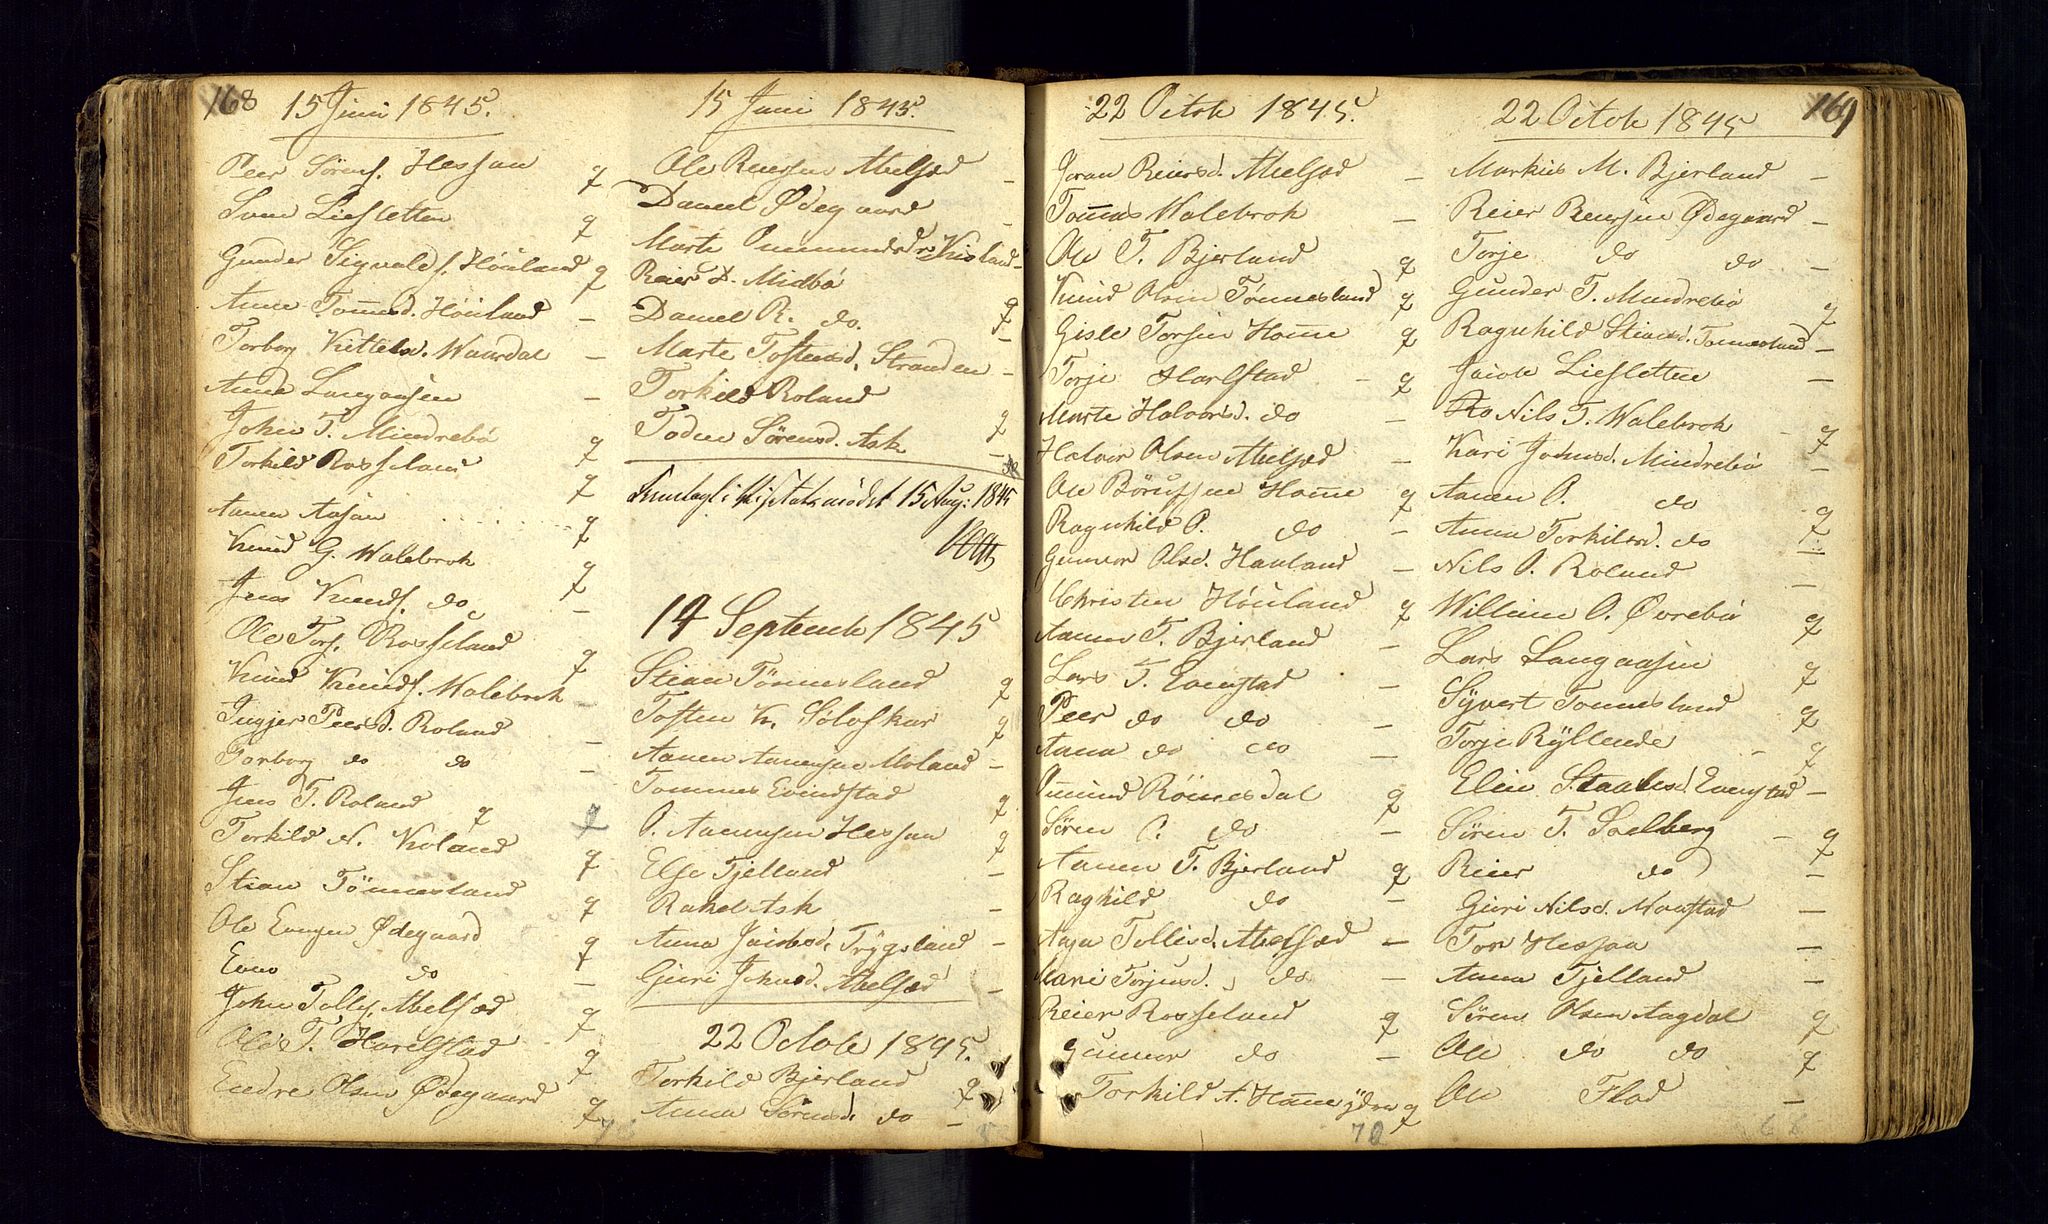 168
15 Juni 1845.
Peer Sørens. Hessaa q
Sven Liesletten q
Gunder Sigvalds. Höiland q
Anne Tommesd. Höiland –
Torborg Kittelsd. Waardal –
Anne Langaasen –
John T. Mindrebö q
Torkild Rosseland q
Aanen Aasen q
Knud G. Walebrok q
Jens Knuds. do –
Ole Tors. Rosseland q
Knud Knuds. Walebrok –
Ingjer Peersd. Roland –
Torborg do do –
Jens T. Roland q
Torkild N. Roland q
Stian Tönnesland q
Ole Evensen Ødegaard q
Even do –
John Tollfs. Abelsæd q
Ole T. Harelstad q
Endre Olsen Ødegaard q
15 Juni 1845.
Ole Reiersen Abelsæd –
Daniel Ødegaard –
Marte Ommundsd. –
Reier D. Midbö
Daniel R. do. q
Marte Tostensd. Stranden –
Torkild Roland
Todne Sørensd. Ask –
15 Aug: 1845
14 Septemb 1845
Stian Tönnesland q
Tosten K. Solaskar q
Aanen Aanensen Moland –
Tommes Evindstad q
O. Aanensen Hessaa q
Else Fjelland –
Rakel Ask –
Anna Jacobsd. Trygsland –
Guri Johnsd. Abelsæd –
22 Octob 1845.
Torkild Bjerland q
Anna Sörensd. do –
22 Octob 1845.
Joran Reiersd. Abelsæd –
Tommes Walebrok –
Ole T. Bjerland q
Knud Olsen Tønnesland q
Gisle Torsen Homme q
Torje Harlstad – q
Marte Halvorsd. do –
Halvor Olsen Abelsæd –
Ole Börufsen Homme q
Ragnhild O. do –
Gunvor Olsd. Hauland –
Christen Höiland q
Aanen T. Bjerland –
Lars T. Evenstad –
Peer do do –
Anna do do –
Omund Römesdal q
Sören O. do –
Aanen T. Bjerland q
Raghild do –
Aasa Tollisd. Abelsæd –
Mari Torjusd. do –
Reier Rosseland q
Gunvor do –
Torkild A. Homme ydre q
70
169
22 Octob 1845
Markus M. Bjerland –
Reier Reiersen Ødegaard –
Torje do do –
Gunder T. Mindrebö q
Ragnhild Stiansd. Tonnesland –
Jacob Liesletten –
Nils T. Walebrok q
Kari Johnsd. Mindrebö –
Aanen O. do q
Anna Torkilsd. do –
Nils O. Roland –
Willum O. Øvrebö q
Lars Langaasen q
Syvert Tonnesland q
Torje Ryllende – q
Elen Staalesd. Evenstad –
Sören T. Soelberg – q
Reier do –
Guri Nilsd. Movstad –
Tor Hessaa –
Anna Fjelland –
Sören Olsen Aagdal q
Ole do do q
Ole Flad –